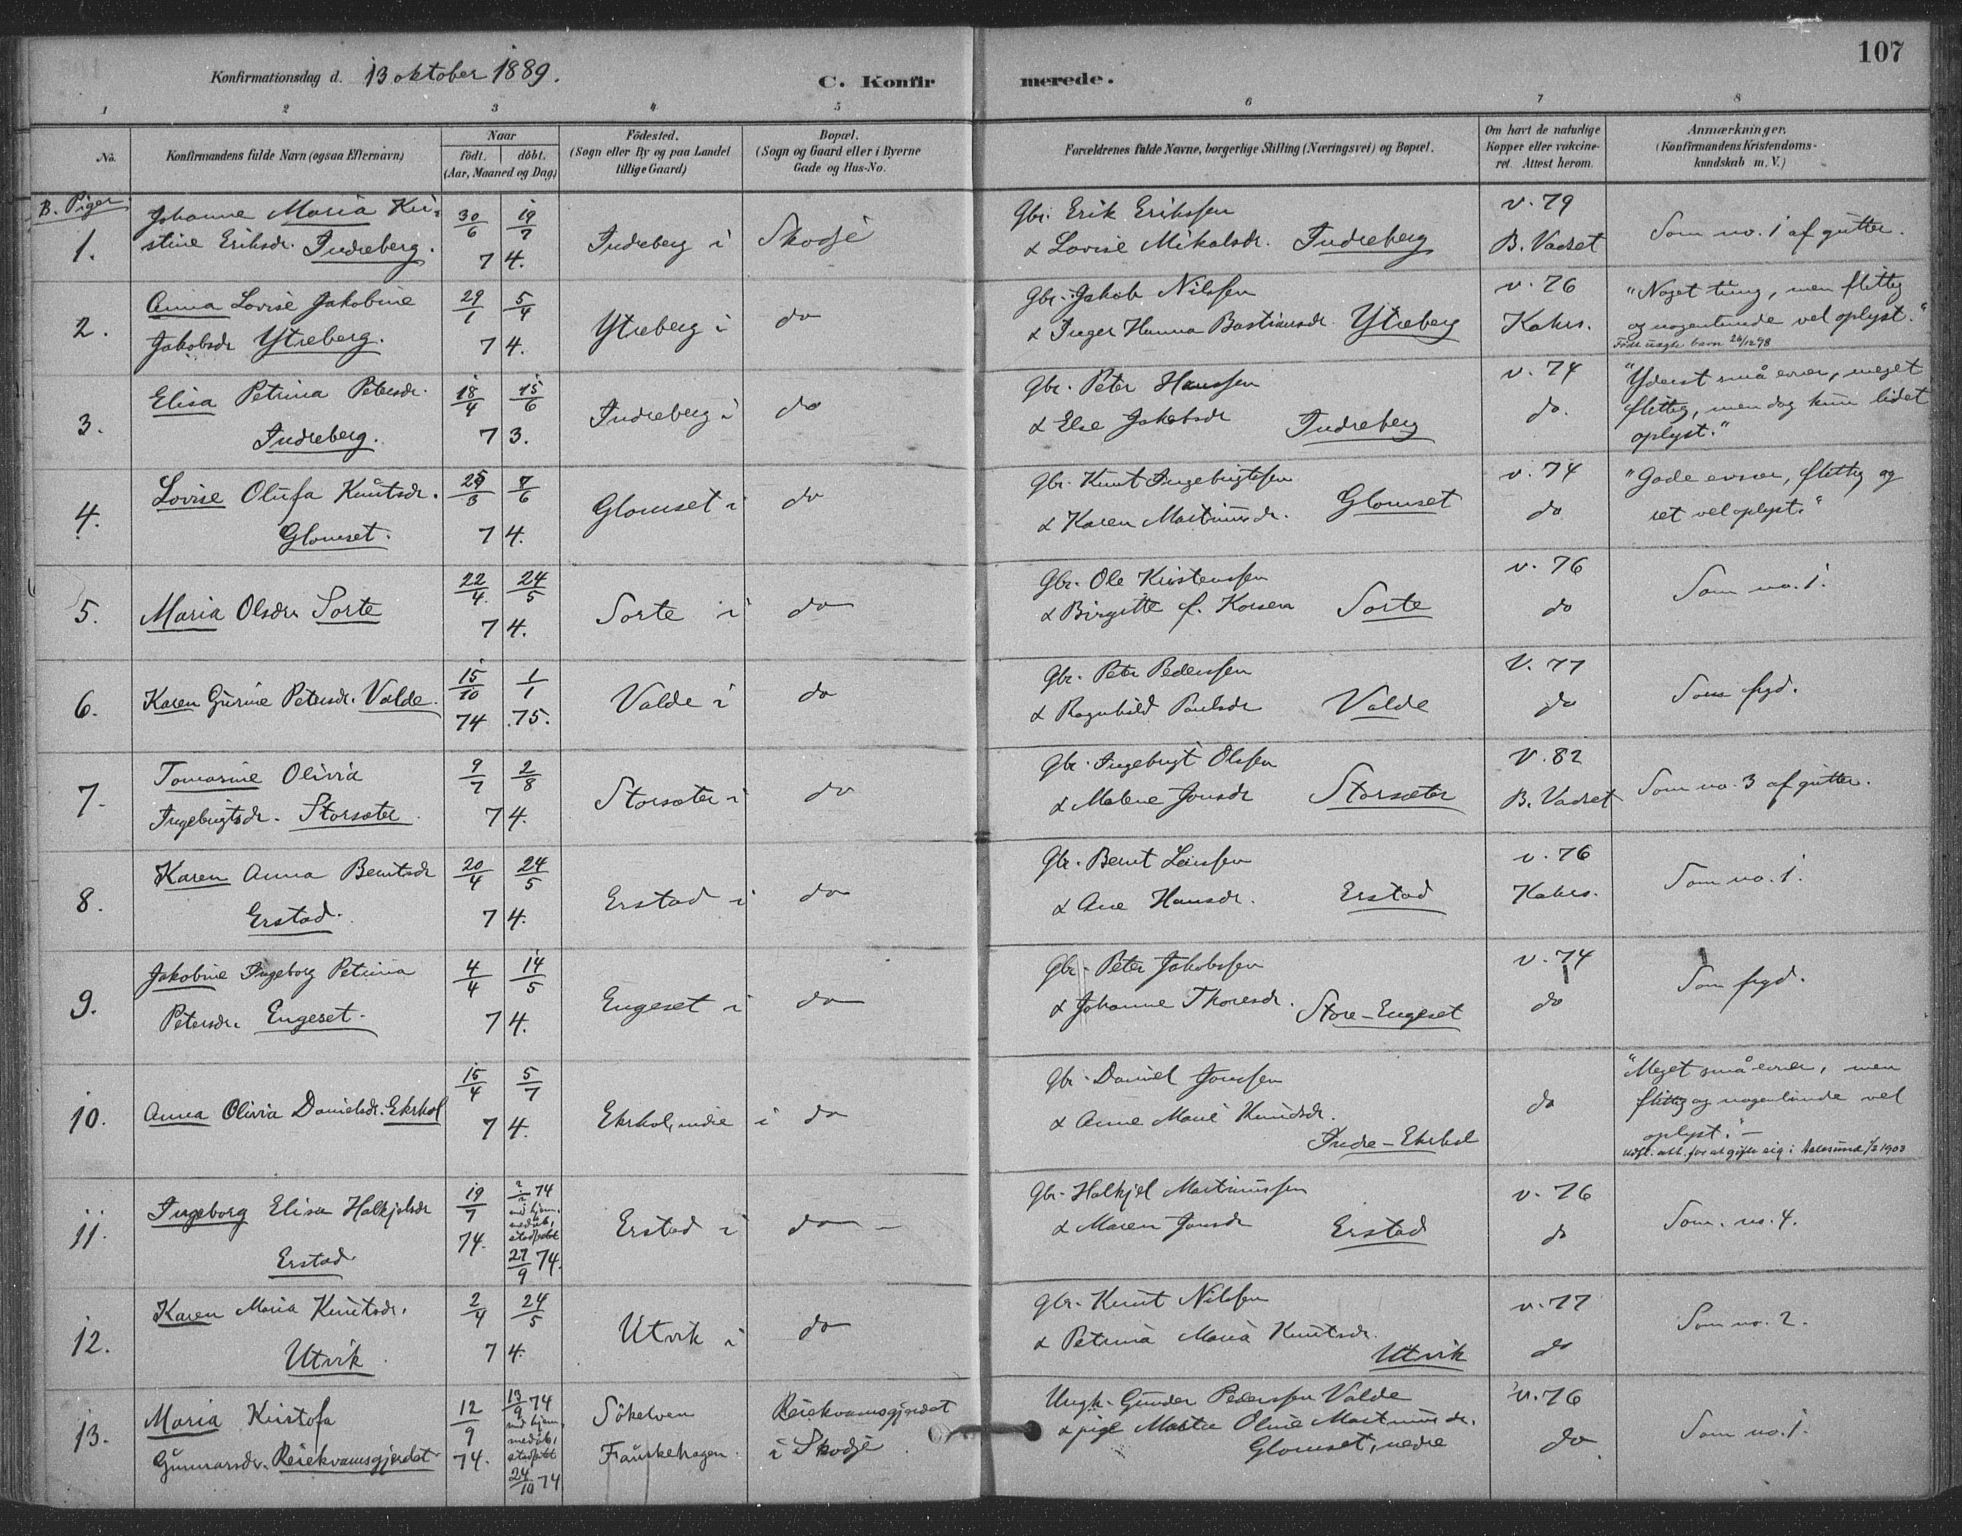 107
Konfirmationsdag d. 13 oktober 1889.
C. Konfir merede.
1 2 3 4 5 6 7 8
No.
Konfirmandens fulde Navn (ogsaa Efternavn)
Naar
födt. döbt.
(Aar, Maaned og Dag)
Födested.
(Sogn eller By og paa Landet
tillige Gaard)
Bopæl.
(Sogn og Gaard eller i Byerne
Gade og Hus-No.
Forældrenes fulde Navne, borgerlige Stilling (Næringsvei) og Bopæl.
Om havt de naturlige
Kopper eller vakcine-
ret. Attest herom.
Anmærkninger.
(Konfirmandens Kristendoms-
kundskab m. V.)
B. Piger
1. Johanne Maria Kri-
stine Eriksdr. Indreberg.
30/6 19/7
74.
Indreberg i Skodje
Gbr. Erik Erikssen
& Lovise Mikalsdr. Indreberg
v. 79
B. Vadset
Som no. 1 af gutter.
2. Anna Lovise Jakobine
Jakobsdr Ytreberg.
29/1 5/4
74.
Ytreberg i do
Gbr. Jakob Nilssen
& Inger Hanna Bastiansdr. Ytreberg
v. 76
Kahrs.
"Noget tung, men flittig
og nogenlunde vel oplyst."
Født uegte barn 26/12 98
3. Elisa Petrina Petersdr.
Indreberg.
18/4 15/6
73.
Indreberg i do
Gbr. Peter Hanssen
& Else Jakobsdr Indreberg
v. 74
do.
"Yderst små evner, meget
flittig, men dog kun lidet
oplyst."
4. Lovise Olufa Knutsdr.
Glomset.
25/3 7/6
74.
Glomset i do
Gbr. Knut Ingebrigtssen
& Karen Martinusdr. Glomset
v. 74
do
"Gode evner, flittig og
ret vel oplyst."
5. Maria Olsdr. Sorte
22/4. 24/5
74.
Sorte i do
Gbr. Ole Kristenssen
& Birgitte f. Korsen Sorte
v. 76
do
Som no. 1.
6. Karen Gurine Petersdr. Valde.
15/10 1/1
74 .75.
Valde i do
Gbr. Peter Pederssen
& Ragnhild Paulsdr Valde
V. 77
do
Som fryd.
7. Tomasine Olivia
Ingebrigtsdr. Storsæter.
9/7 2/8
74.
Storsæter i do
Gbr. Ingebrigt Olssen
& Malene Jonsdr Storsæter
V. 82
B. Vadset
Som no. 3 af gutter.
8. Karen Anna Berntsdr
Erstad.
20/4 24/5
74.
Erstad i do
Gbr. Bernt Larssen
& Ane Hansdr. Erstad
v. 76
Kahrs.
Som no. 1.
9. Jakobine Ingeborg Petrina
Petersdr. Engeset.
4/4 14/5
74.
Engeset i do
Gbr. Peter Jakobssen
& Johanne Thoresdr. Store-Engeset
v. 74
do
Som fryd.
10. Anna Olivia Danielsdr. Ekrhol
15/4 5/7
74.
Ekrhol, indre i do
Gbr. Daniel Jonssen
& Anne Marie Knudsdr.
Indre-Ekrhol
do
"Meget små evner, men
flittig og nogenlunde vel
oplyst."-
Udst. att. for at gifte sig i Aalesund 1/2 1903
11. Ingeborg Elisa Halkjelsdr
Erstad
19/7
74.
?/? 74
ind hjem-
medøb,
stadfæstet
27/9 74.
Erstad i do -
Gbr. Halkjel Martinussen
& Maren Jonsdr Erstad
v. 76
do
Som. no. 4.
12. Karen Maria Knutsdr.
Utvik.
2/4 24/5
74.
Utvik i do
Gbr. Knut Nilssen
& Petrina Maria Knutsdr.
Utvik
v. 77
do
Som no. 2.
13. Maria Kristofa
Gunnarsdr. Reiekvamsgjerdet
12/9
74.
13/9 74
ind hjem-
medøb,
stadfæstet
24/10 74
Sökelven
Frauskehagen
Reiekvamsgjerdet
i Skodje
Ungk. Gunder Pederssen Valde
& pige Marta Oline Martinusdr.
Glomset, nedre
v. 76
do
Som no. 1.